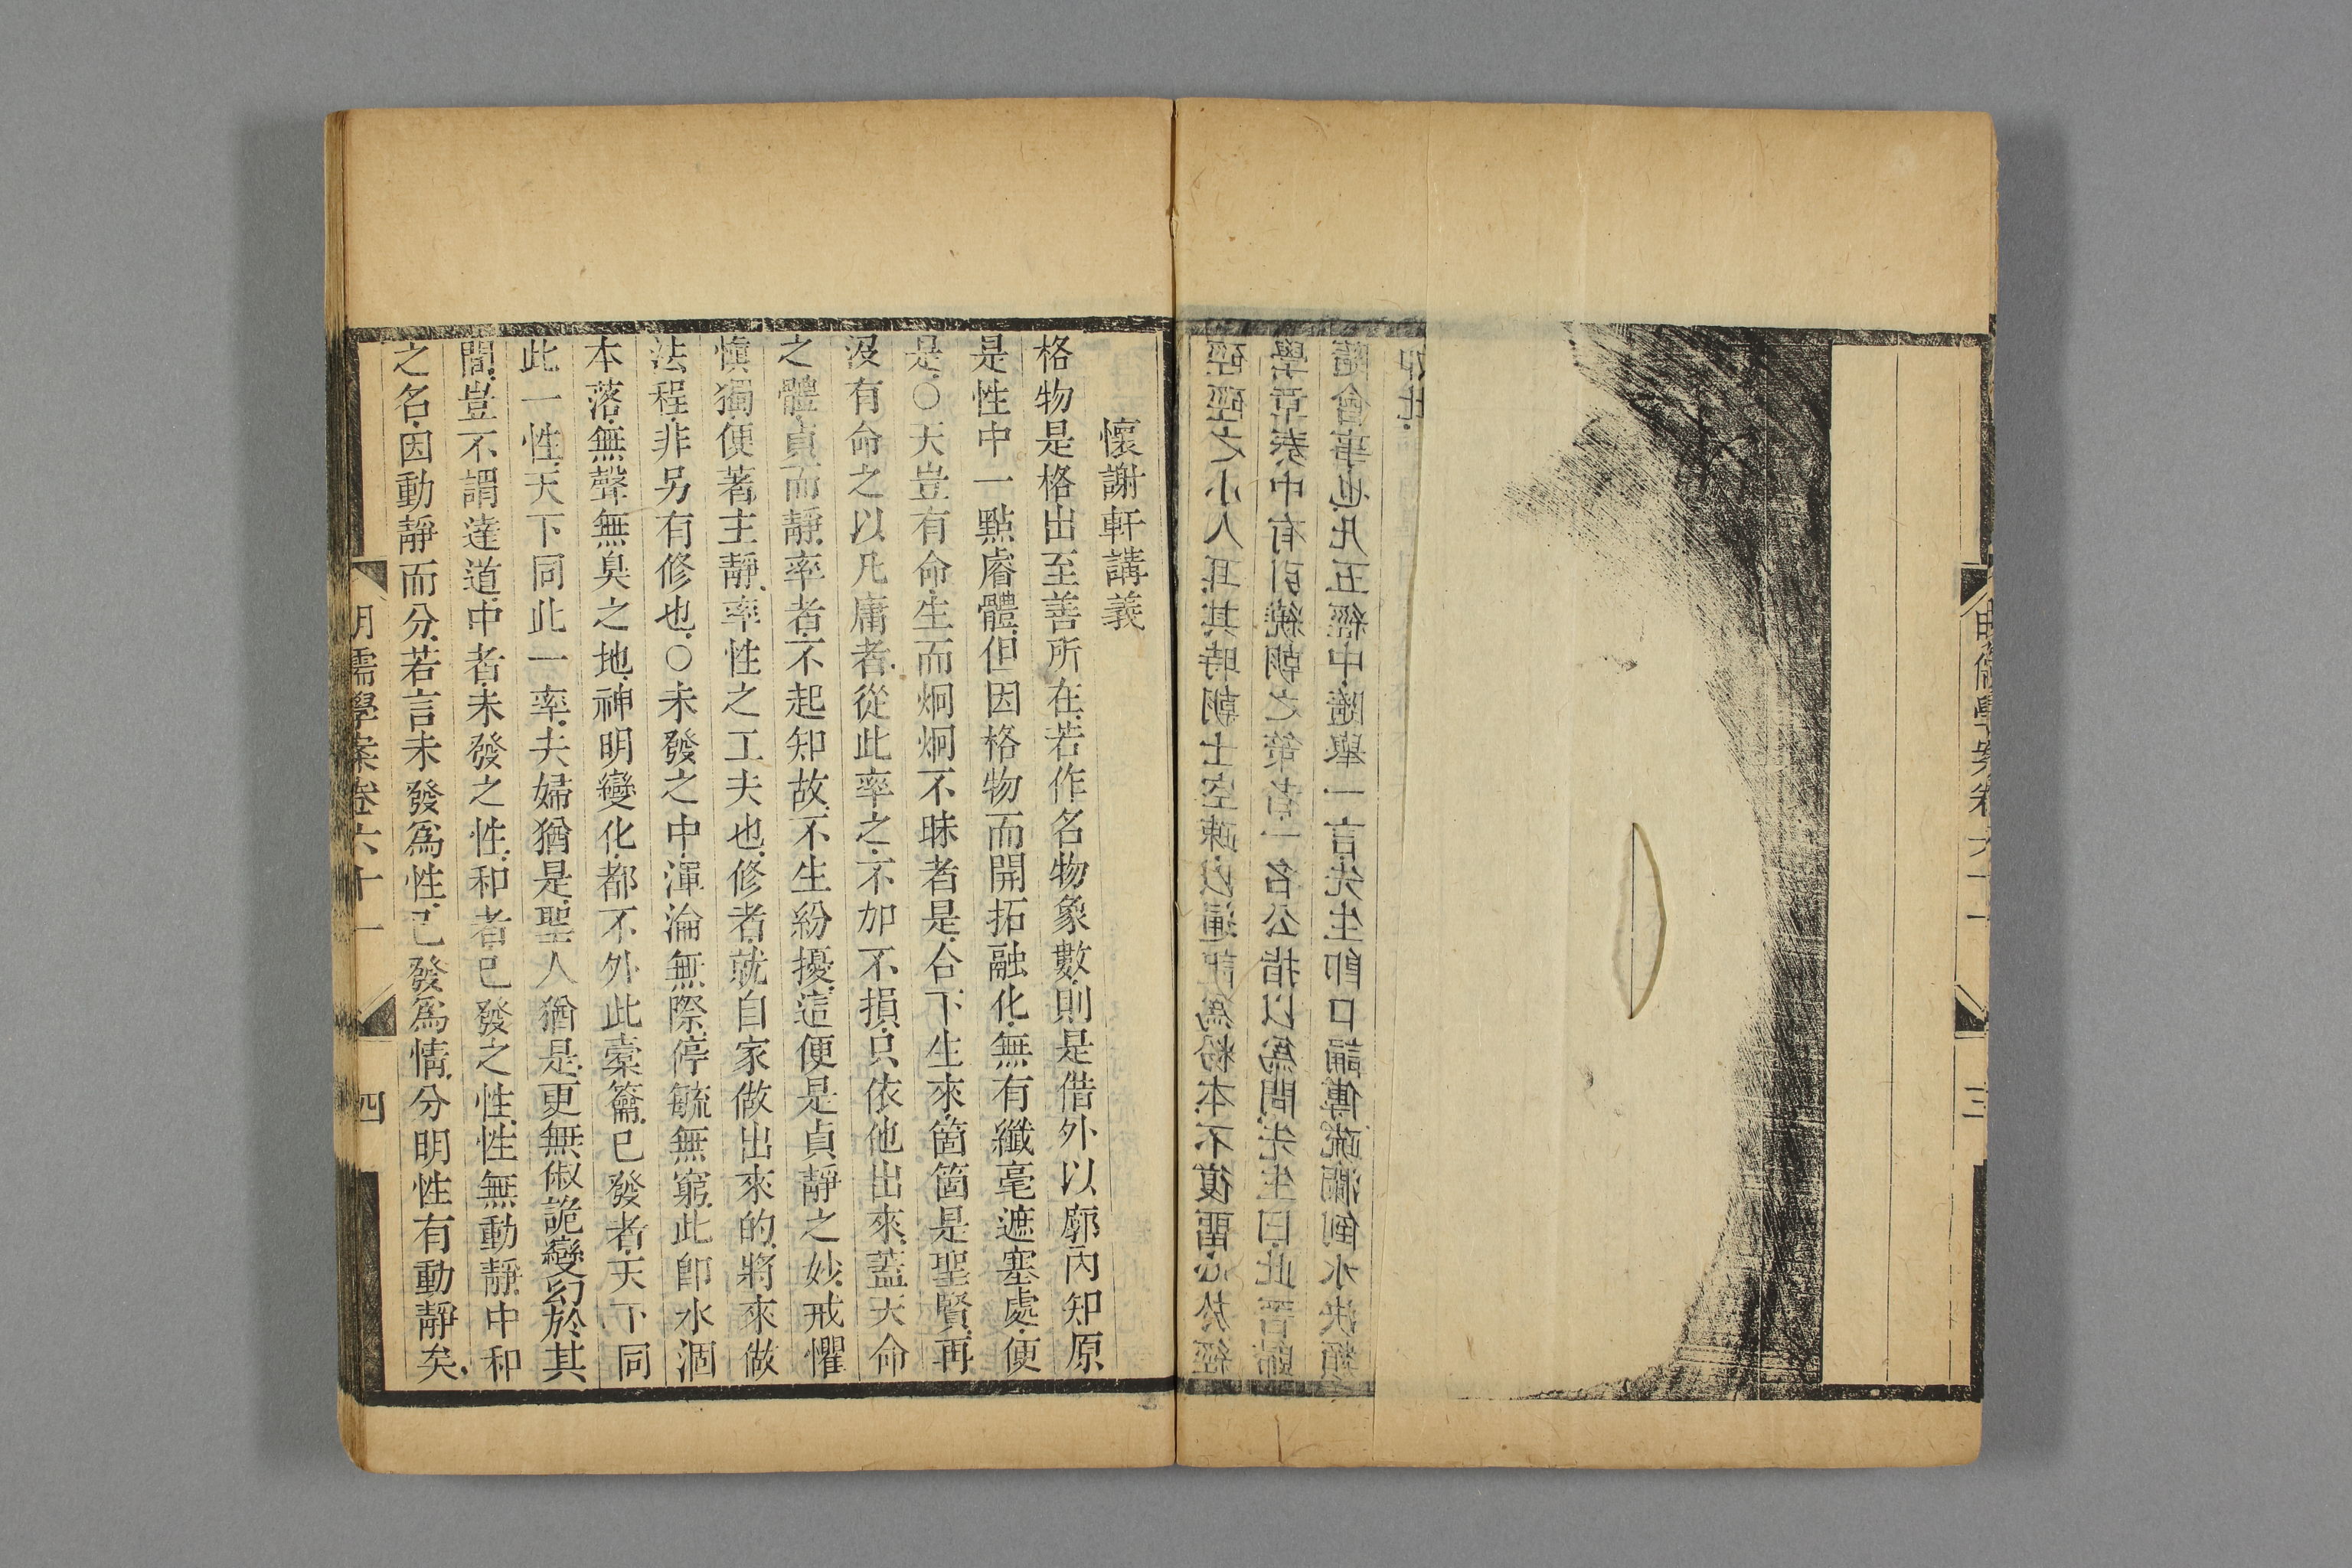 明儒學案卷六十一 三
硜硜之小人耳其時朝士空疎以通記爲粉本不復畱心於經
學章奏中有引繞朝之策者一名公指以爲問先生曰此晉歸
隨會事也凡五經中隨舉一言先生卽口誦傳疏瀾倒水決類
如此
懷謝軒講義
格物是格出至善所在若作名物象數則是借外以廓內知原
是性中一點睿體但因格物而開拓融化無有纖毫遮塞處便
是○天豈有命生而炯炯不昧者是合下生來箇箇是聖賢再
沒有命之以凡庸者從此率之不加不損只依他出來蓋天命
之體貞而靜率者不起知故不生紛擾這便是貞靜之妙戒懼
愼獨便著主靜率性之工夫也修者就自家做出來的將來做
法程非另有修也○未發之中渾淪無際停毓無窮此卽水涸
本落無聲無臭之地神明變化都不外此橐籥已發者天下同
此一性天下同此一率夫婦猶是聖人猶是更無俶詭變幻於其
間豈不謂達道中者未發之性和者已發之性性無動靜中和
之名因動靜而分若言未發爲性已發爲情分明性有動靜矣
明儒學案卷六十一 四